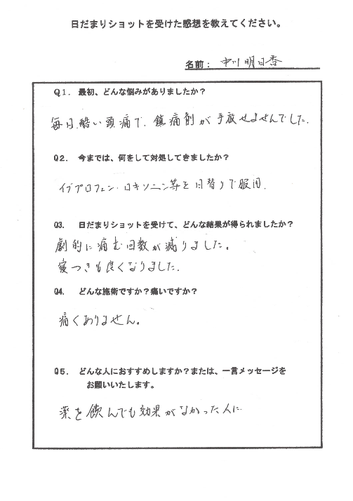 日だまりショットを受けた感想を教えてください。
名前： 中川 明日香
Q1． 最初、どんな悩みがありましたか？
毎日酷い頭痛で、鎮痛剤が手放せませんでした．
Q2． 今までは、何をして対処してきましたか？
イブプロフェン・ロキソニン等を日替りで服用．
Q3． 日だまりショットを受けて、どんな結果が得られましたか？
劇的に痛む回数が減りました。
寝つきも良くなりました．
Q4． どんな施術ですか？痛いですか？
痛くありません。
Q5． どんな人におすすめしますか？または、一言メッセージを
お願いいたします。
薬を飲んでも効果がなかった人に